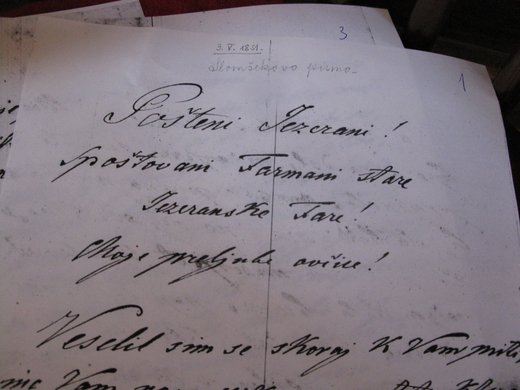 3
3. V. 1851.
Slomšekovo pismo
1
Pošteni Jezerani!
spoštovam Farmani stare
Jezeranske Fare!
Moje preljube ovčice!
Veselil sim se skoraj k Vam priti
Vam